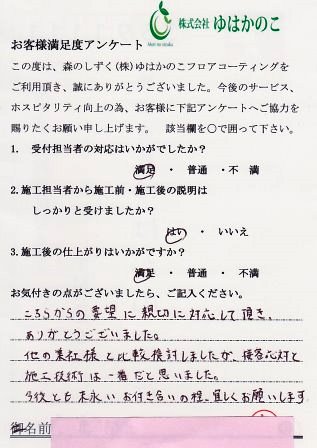 株式会社 ゆはかのこ
お客様満足度アンケート
この度は、森のしずく(株)ゆはかのこフロアコーティングを
ご利用頂き、誠にありがとうございました。今後のサービス、
ホスピタリティ向上の為、お客様に下記アンケートへご協力を
賜りたくお願い申し上げます。 該当欄を○で囲って下さい。
1. 受付担当者の対応はいかがでしたか?
満足 ・ 普通 ・不 満
2.施工担当者から施工前・施工後の説明は
しっかりと受けましたか?
はい ・ いいえ
3.施工後の仕上がりはいかがですか?
満足 ・ 普通 ・ 不満
お気付きの点がございましたら、ご記入ください。
こちらからの要望に親切に対応して頂き、
ありがとうございました。
他の業社様と比較検討しましたが、接客応対と
施工技術は一番だと思いました。
今後とも末永いお付き合いの程、宜しくお願いします
御名前